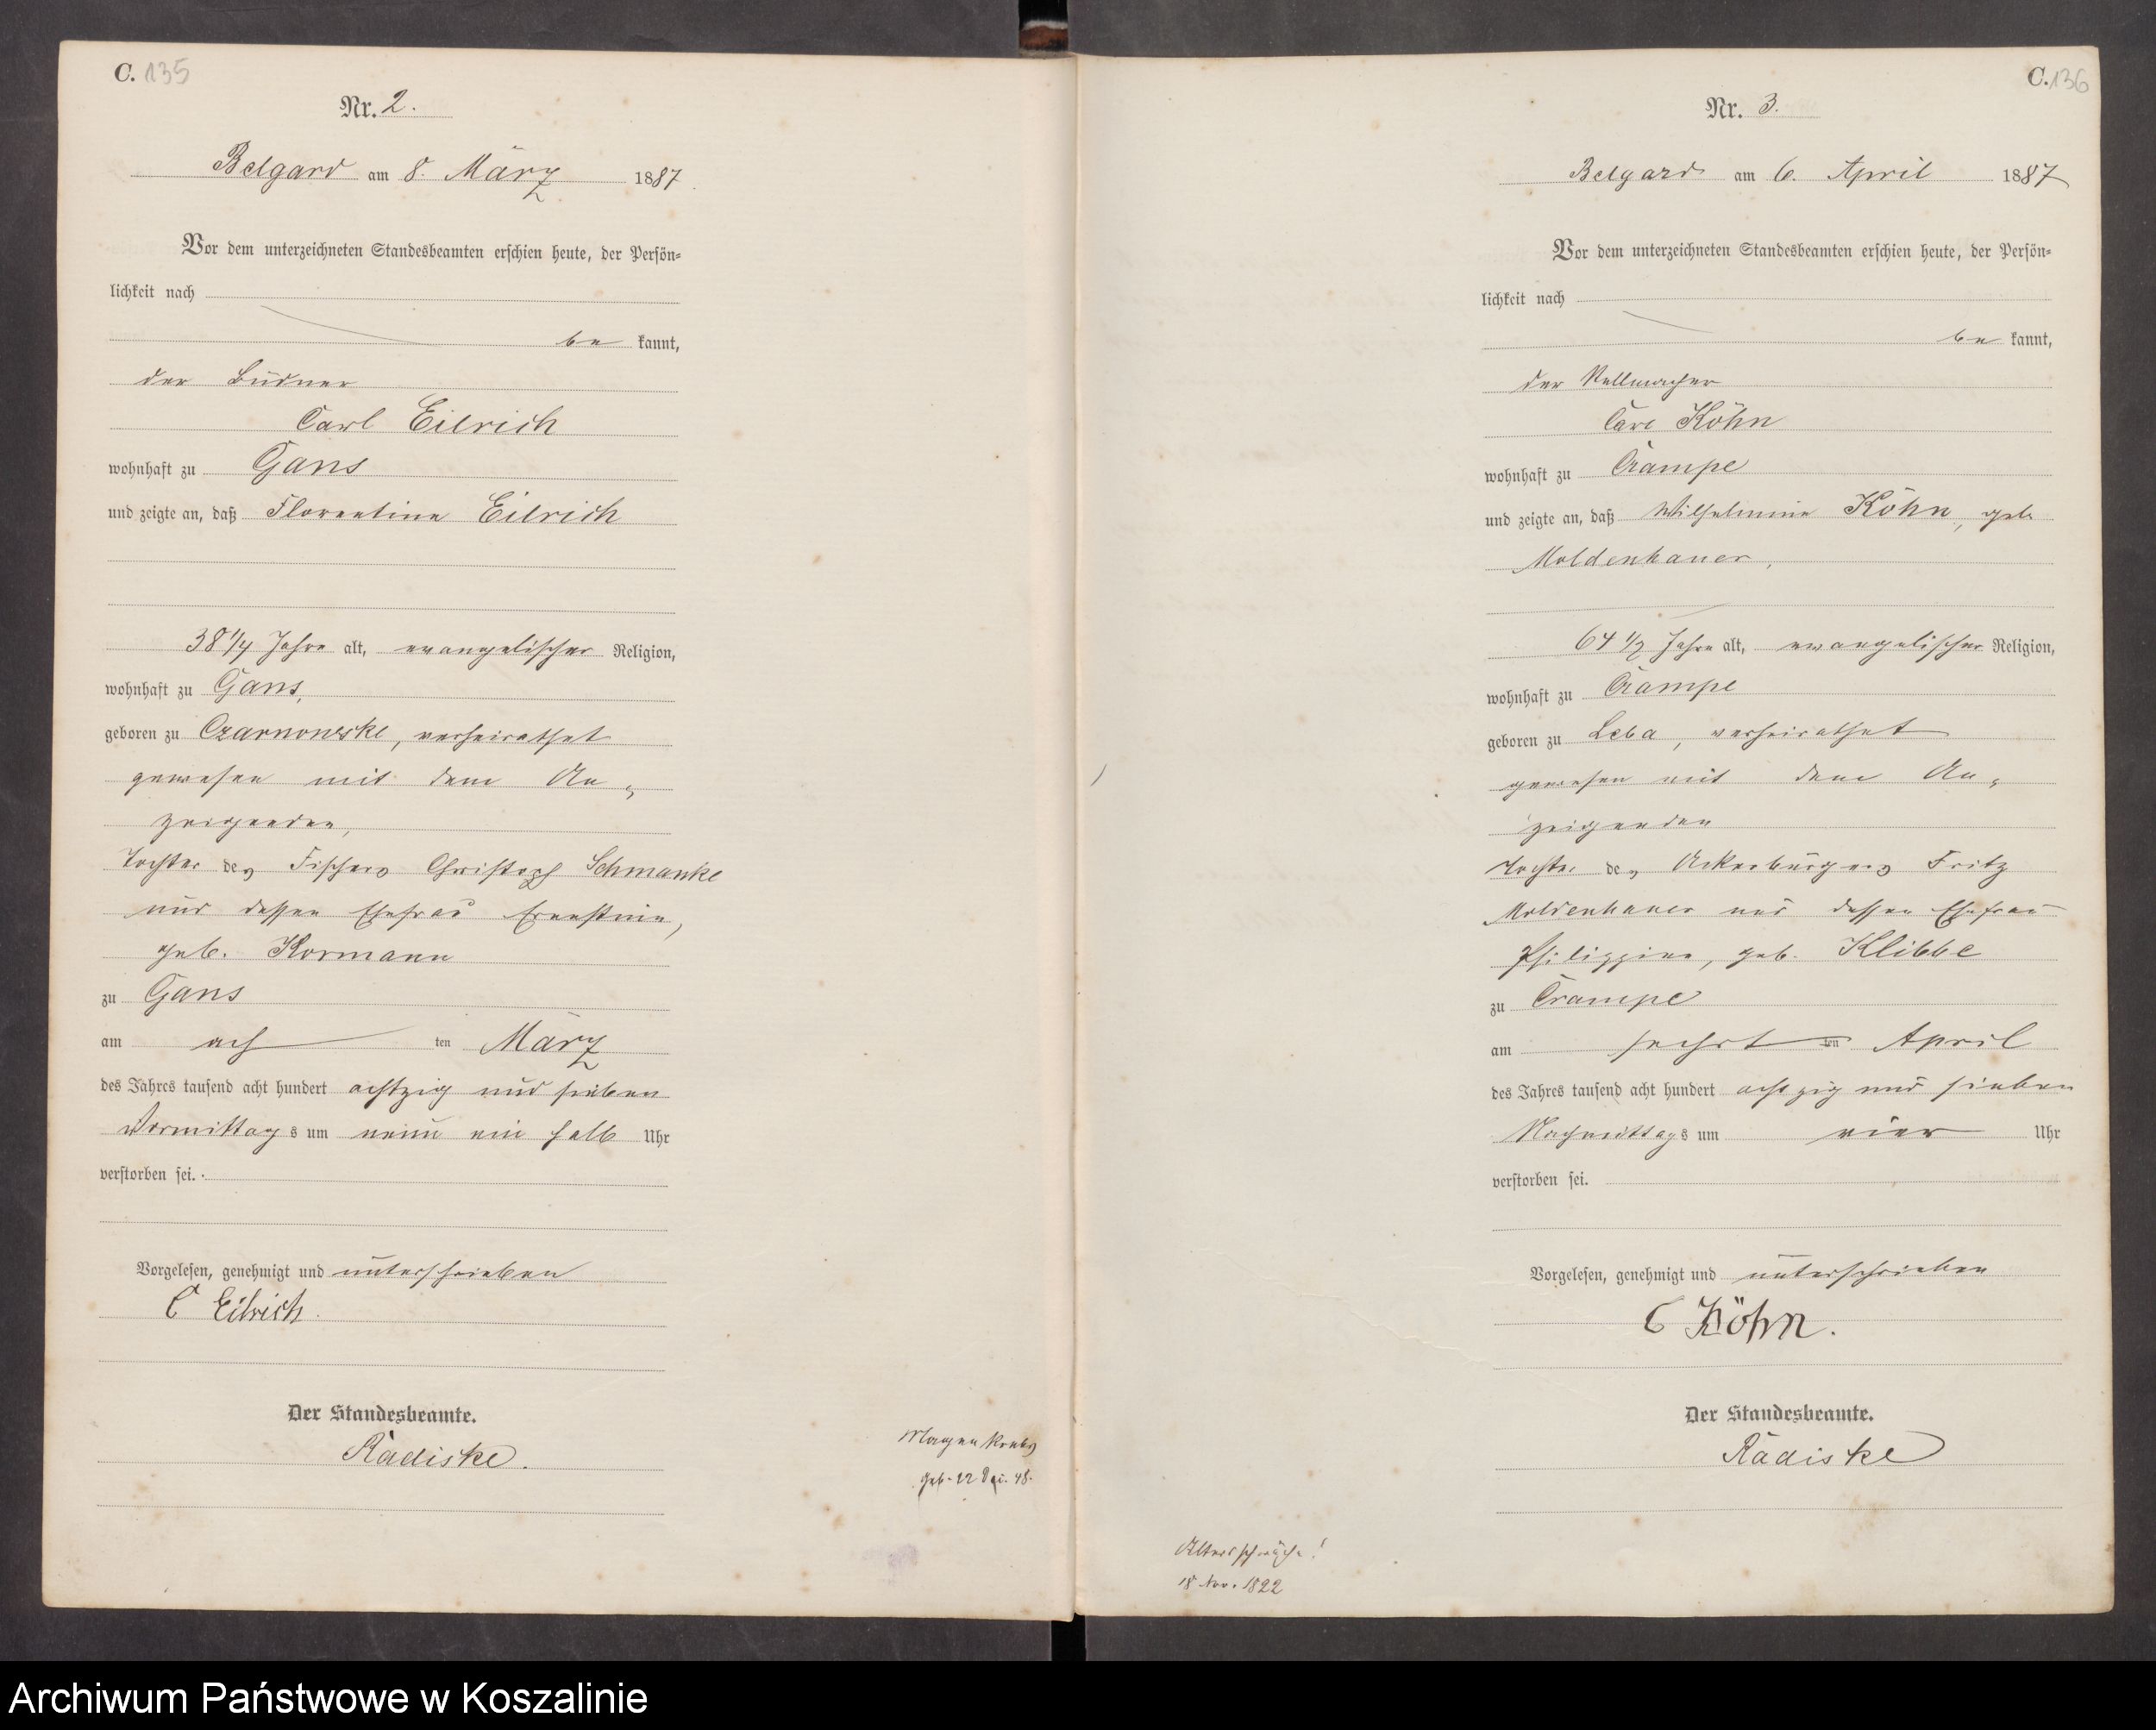 C. 135
Nr. 2.
Belgard am 8. März 1887
Vor dem unterzeichneten Standesbeamten erschien heute, der Persön=
lichkeit nach
be kannt,
der Büdner
Carl Eilrich
wohnhaft zu Gans
und zeigte an, daß Florentine Eilrich
38 1/4 Jahre alt, evangelischer Religion,
wohnhaft zu Gans,
geboren zu Czarnowske, verheirathet
gewesen mit dem An=
zeigenden,
Tochter des Fischers Christoph Schmanke
und dessen Ehefrau Ernestine,
geb. Kormann
zu Gans
am ach ten März
des Jahres tausend acht hundert achtzig und sieben
Vormittags um neun ein halb Uhr
verstorben sei.
Vorgelesen, genehmigt und unterschrieben
C Eilrich.
Der Standesbeamte.
Radiske.
Magenkrebs
geb. 22 Dez. 48.
C. 136
Nr. 3.
Belgard am 6. April 1887
Vor dem unterzeichneten Standesbeamten erschien heute, der Persön=
lichkeit nach
be kannt,
der
Carl Köhn
wohnhaft zu Crampe
und zeigte an, daß Wilhelmine Köhn, geb.
Moldenhauer,
64 1/2 Jahre alt, evangelischer Religion,
wohnhaft zu Crampe
geboren zu Leba, verheirathet
gewesen mit dem An=
zeigenden
Tochter des Ackerbürgers Fritz
Moldenhauer und dessen Ehefrau
Philippine, geb. Klibbe
zu Crampe
am sechst ten April
des Jahres tausend acht hundert achtzig und sieben
Nachmittags um vier Uhr
verstorben sei.
Vorgelesen, genehmigt und unterschrieben
C Köhn.
Der Standesbeamte.
Radiske
Altersschwäche!
18 Nov. 1822
Archiwum Państwowe w Koszalinie